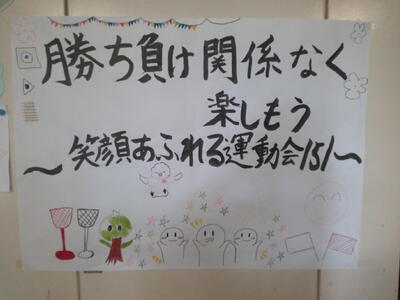 勝ち負け関係なく
楽しもう
～笑顔あふれる運動会151～